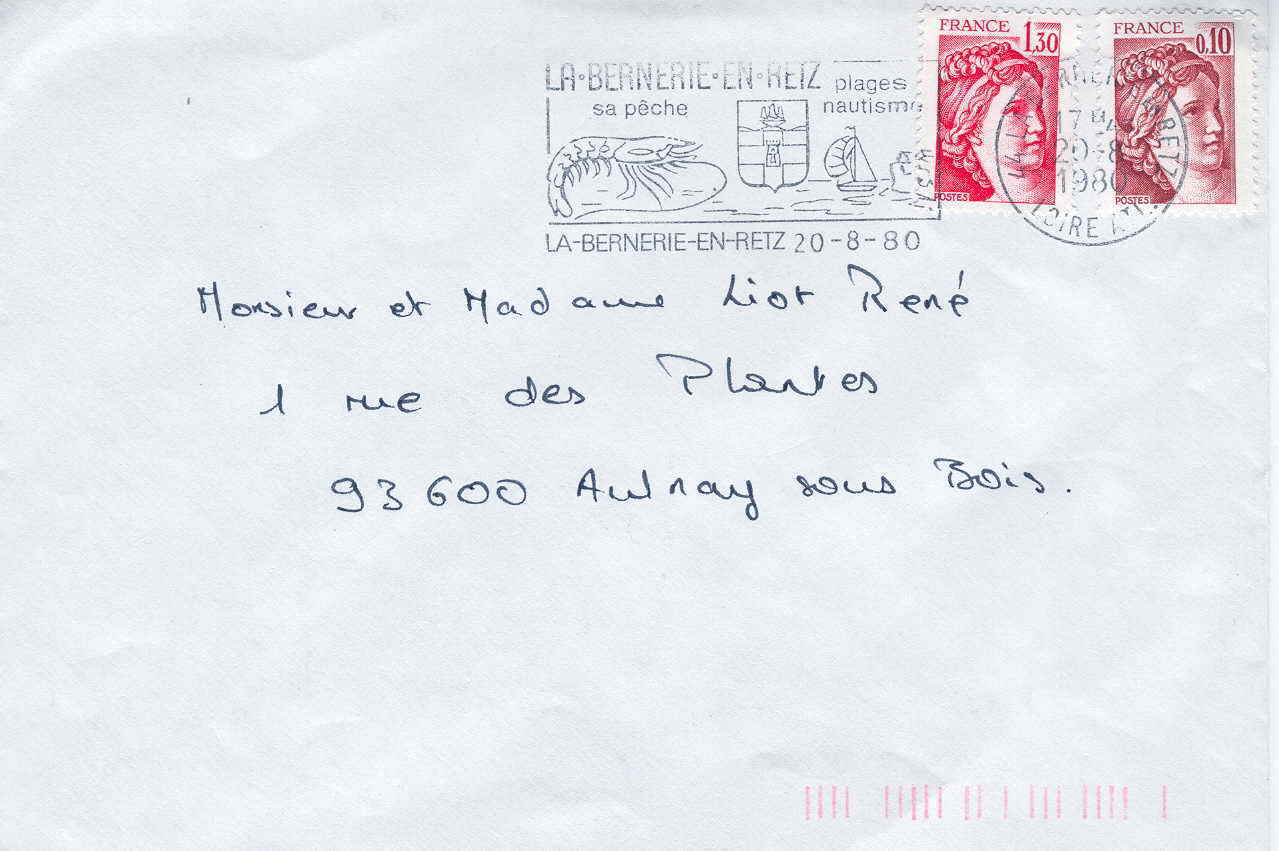 LA·BERNERIE·EN·RETZ
plages
sa pêche
nautisme
LA-BERNERIE-EN-RETZ 20-8-80
FRANCE 1,30
POSTES
FRANCE 0,10
POSTES
17H
20-8
1980
LOIRE ATL.
Monsieur et Madame Liot René
1 rue des Plantes
93600 Aulnay sous Bois.